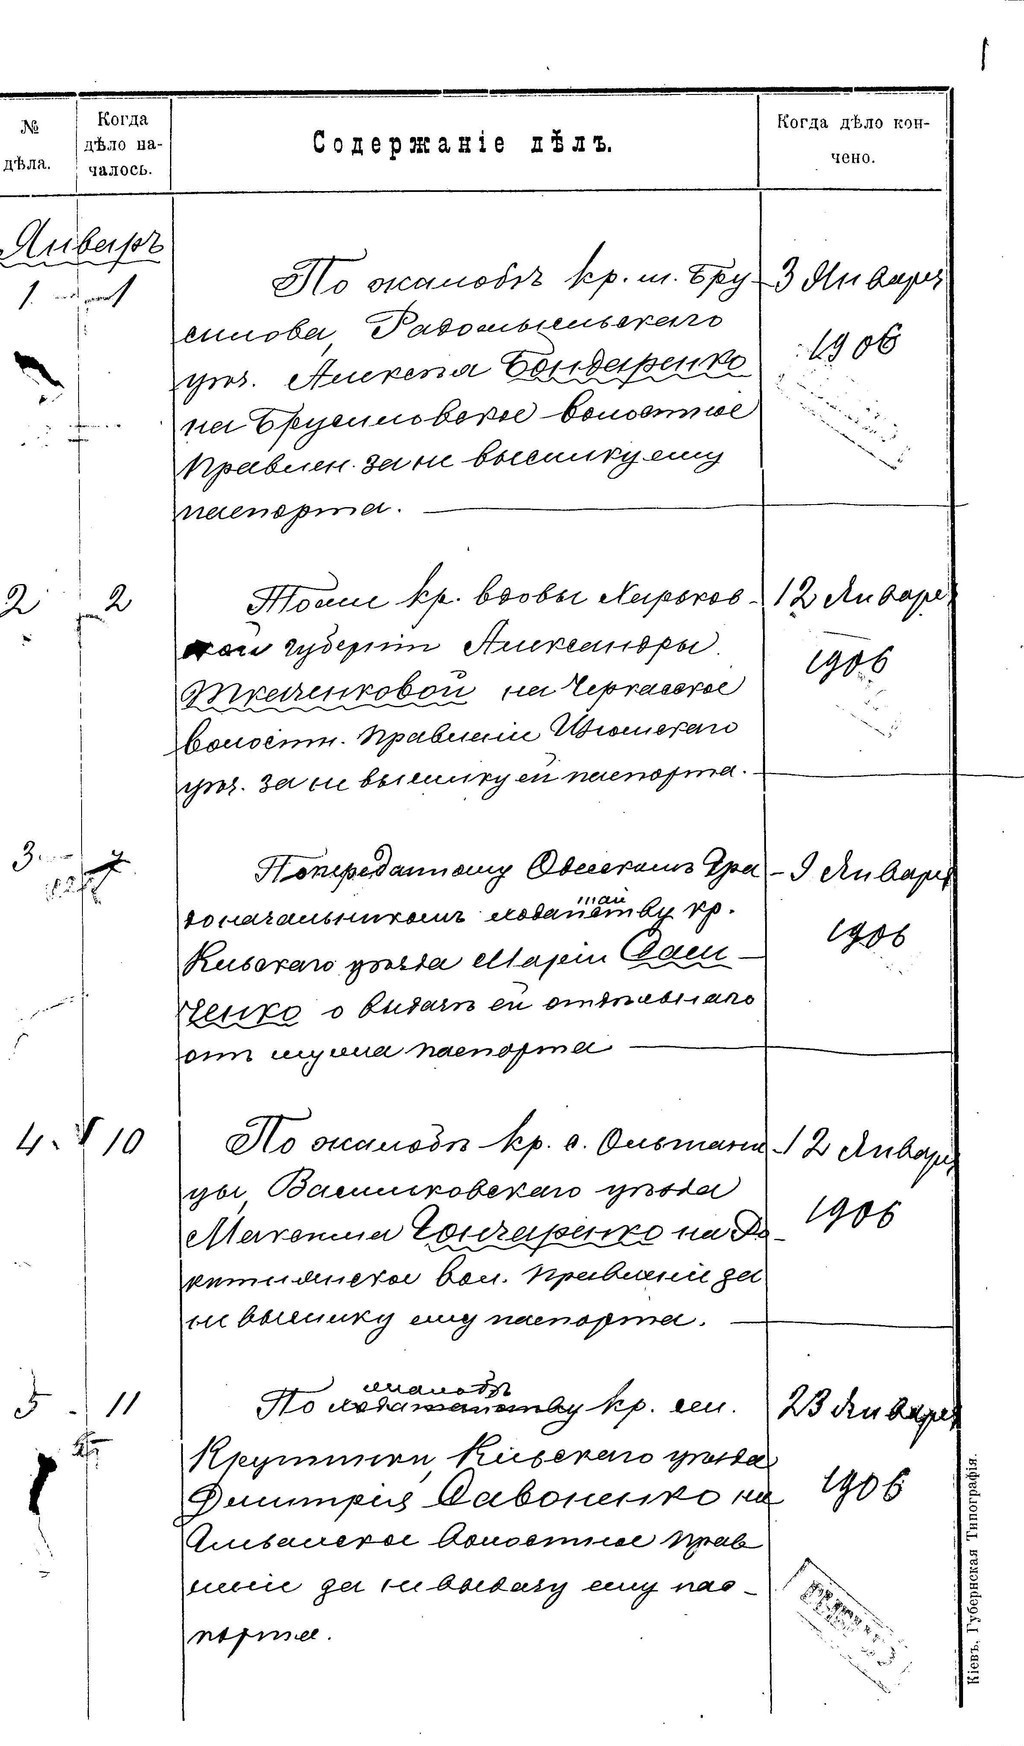 1
№ дѣла.
Когда дѣло на-
чалось.
Содержаніе дѣлъ.
Когда дѣло кон-
чено.
Январь
1 1
По жалобѣ кр. м. Бру-
силова, Радомысльскаго
уѣз. Алексѣя Бондаренко
на Брусиловское волостное
Правлен. за не высылку ему
паспорта.
3 Января
1906
2 2
Тоже кр. вдовы Харьков-
ской губерніи Александры
Ткаченковой на Черкасское
волостн. Правленіе Изюмскаго
уѣз. за не высылку ей паспорта.
12 Января
1906
3 7
По переданному Одесскимъ Гра
доначальникомъ ходатайству кр.
Кіевскаго уѣзда Маріи Сав
ченко о выдачѣ ей отдѣльнаго
отъ мужа паспорта
9 Января
1906
4. 10
По жалобѣ кр. с. Ольшани
цы, Васильковскаго уѣзда
Максима Гончаренко на Ро-
китнянское вол. Правленіе за
не высылку ему паспорта.
12 Января
1906
5 11
жалобѣ
По ходатайству кр. сел.
Кіевскаго уѣзда
Дмитрія Савоненко на
волостное Прав
леніе за не выдачу ему пас-
порта.
23 Января
1906
Кіевъ. Губернская Типографія.